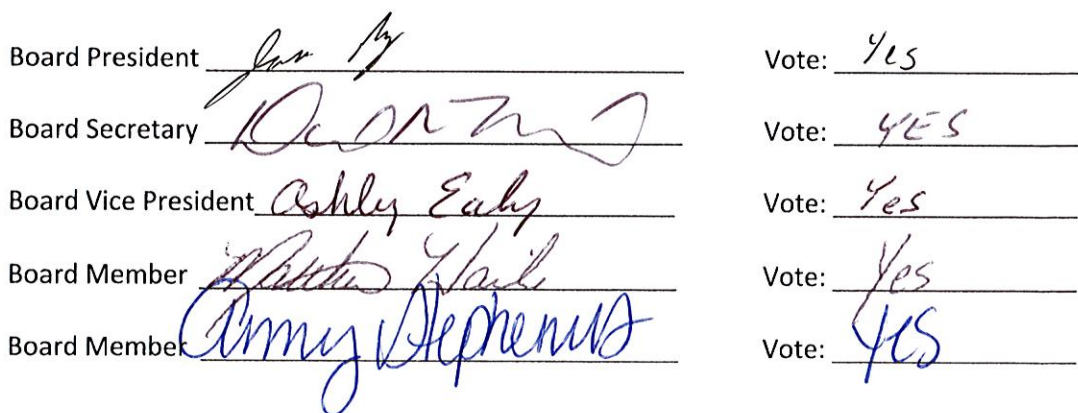 Board President Vote: Yes
Board Secretary Vote: YES
Board Vice President Ashley Ealy Vote: Yes
Board Member Matthew Vote: Yes
Board Member Amy Stephens Vote: YES